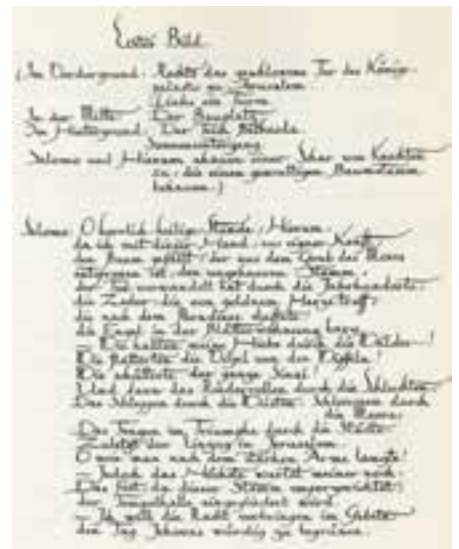 Erstes Bild.
(Im Vordergrund: Rechts das Tor des Königs-
palastes zu Jerusalem
Links ein Turm
In der Mitte: Der Bauplatz
Im Hintergrund: Der Teich Bethesda
Sonnenuntergang
Salomo und Hieram einer Schar von Knechten
zu, die einen gewaltigen Baumstamm
behauen.)
Salomo: O herrlich heilige Stunde, Hieram,
da ich mit dieser Hand, aus eigner Kraft,
den Baum gefällt, der aus dem Grab des
entsprossen ist, den ungeheuren Stamm,
der Tod verwandelt hat durch die Jahrhunderte,
die Zeder, die von goldnem Harze troff,
die nach dem Paradiese duftete
die Engel in der barg.
— Wie hallten meine Hiebe durch die Wälder!
Wie flatterten die Vögel von den Wipfeln!
Wie erschütterte der ganze Sinai!
Und dann das Räderrollen durch die Schluchten
Das Schleppen durch die Wüsten. durch
die Meere.
Das Tragen im Triumphe durch die Städte.
Zuletzt der Einzug in Jerusalem.
O wie man nach dem starken Arme langte!
— Jedoch das Höchste wartet meiner noch.
Das Fest, da dieser Stamm emporgerichtet
der Tempelhalle eingegliedert wird.
— Ich will die Nacht verbringen im Gebete
den Tag Jehovas würdig zu beginnen.